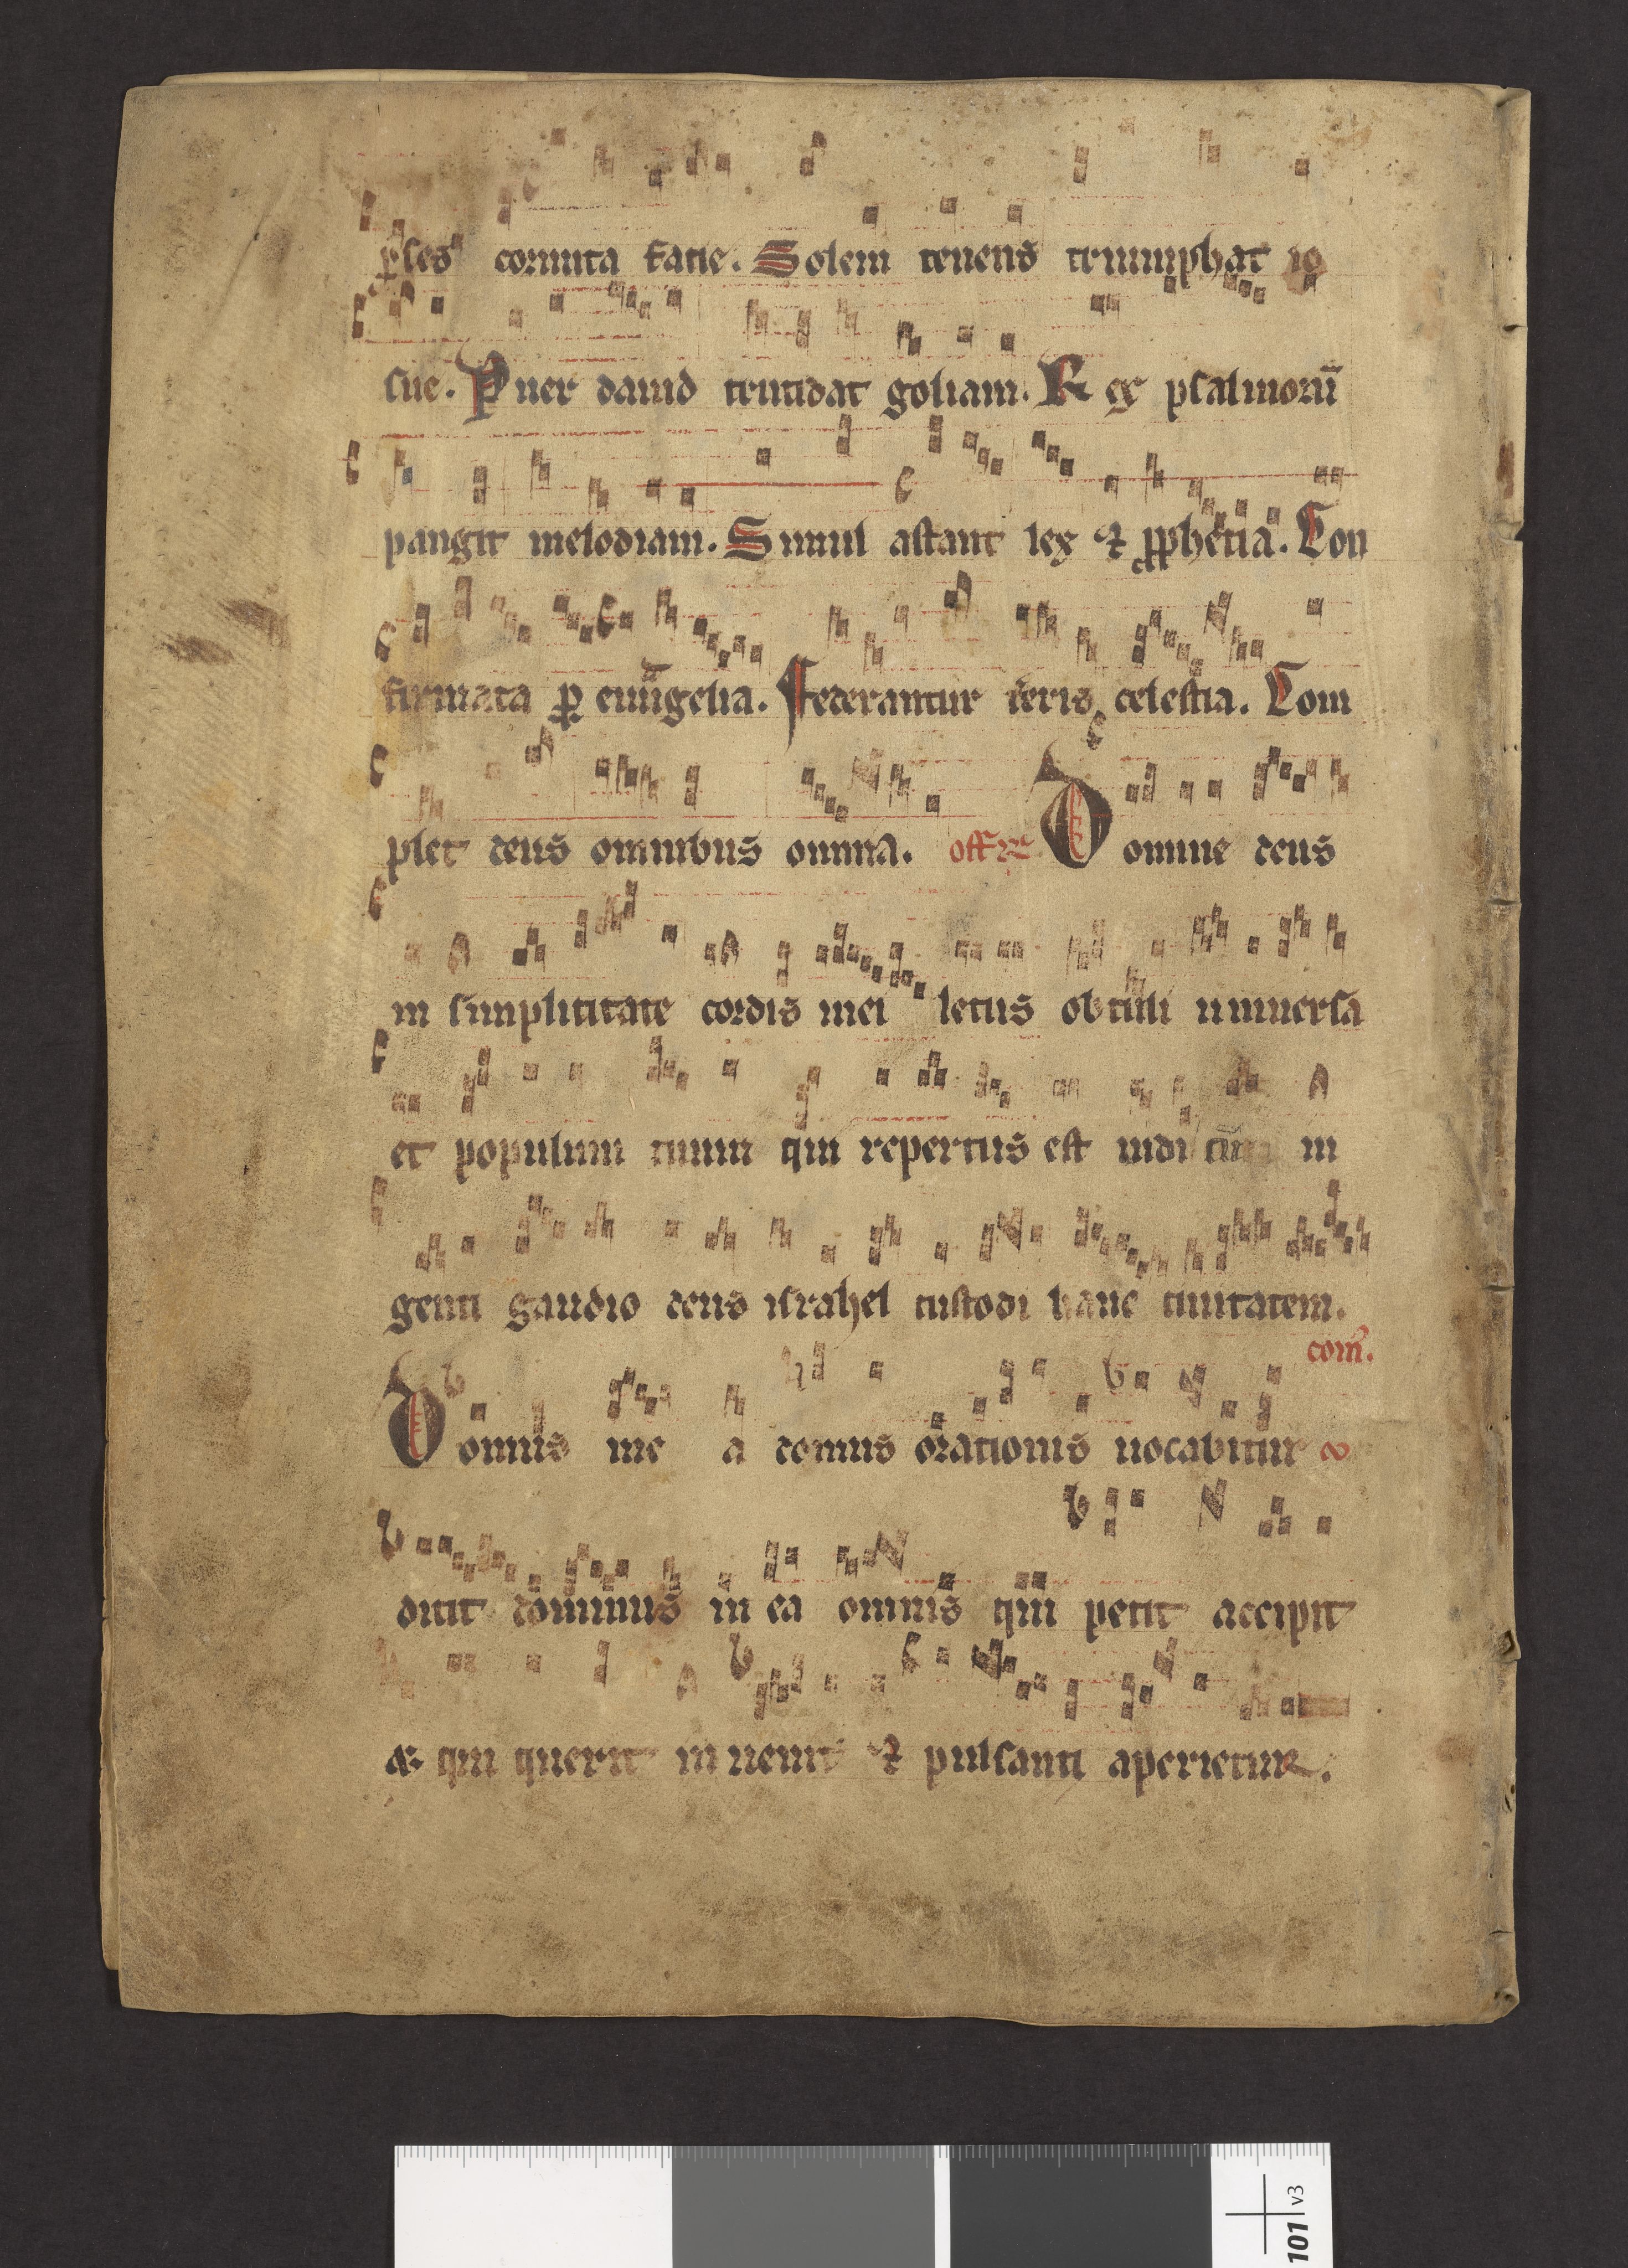 p̱ses cornuta facie. Solem tenens triumphat io
sue. Puer dauid trucidat goliam. Rex psalmorū
pangit melodiam. Simul astant lex ⁊ ꝓphetia. Con
firmata ꝑ euūgelia. Federantur terris celestia. Com
plet deus omnibus omnia. offr̄e Domine deus
in simplicitate cordis mei letus obtuli uniuersa
et populum tuum qui repertus est uidi cū in
genti gaudio deus israhel custodi hanc ciuitatem.
com̄.
Domus me a domus orationis uocabitur
dicit dominus in ea omnis qui petit accipit
& qui querit inuenit ⁊ pulsanti aperietur.
101 v3